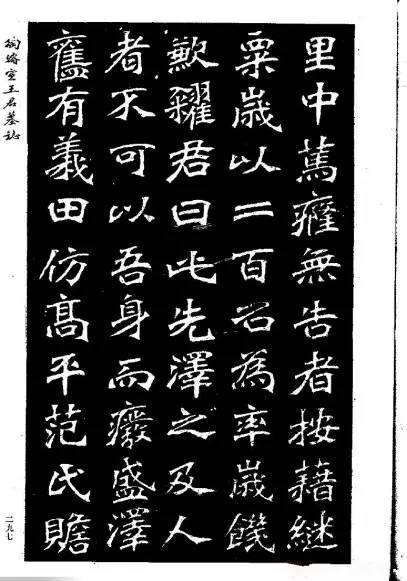 里中篤癃無告者按藉継
粟歲以二百石為率歲饑
歉糶君曰此先澤之及人
者不可以吾身而癈盛澤
舊有義田仿髙平范氏贍
室王君墓誌
二九七